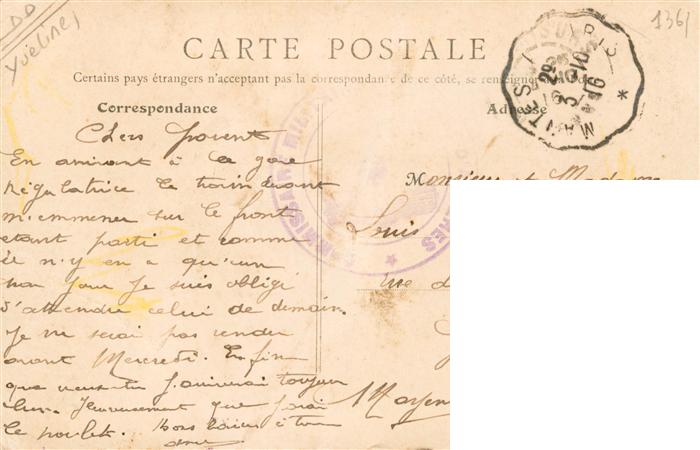 DD
Yvelines
1361
CARTE POSTALE
Certains pays étrangers n'acceptant pas la correspondance de ce côté, se renseigner
Correspondance
Adresse
MANTES
Chers parent
En arrivant à la gare
régulatrice le train devant
m'emmener sur le front
etant parti et comme
il n'y en a qu'un
par jour je suis obligé
d'attendre celui de demain.
Je ne serai pas rendu
avant Mercredi. Enfin
que veux-tu j'arriverai toujour
bien. Heureusement que j'avai
le poulet. Bons baisers à tous
Monsieur et Madame
Louis
rue d
Mayen